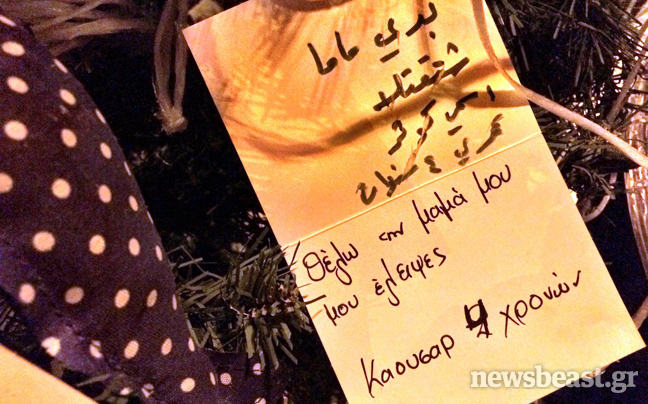 بدي ماما
اسمي
عمري ٤ سنوات
Θέλω την μαμά μου
μου έλειψες
Καουσαρ 4 χρονών
newsbeast.gr